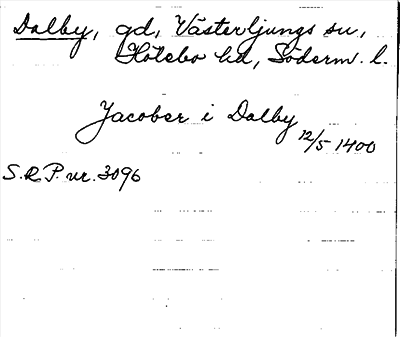 Dalby, gd, Västerljungs sn,
Hölebo hd, Söderm. l.
Jacober i Dalby
12/5 1400
S.R.P. nr. 3096